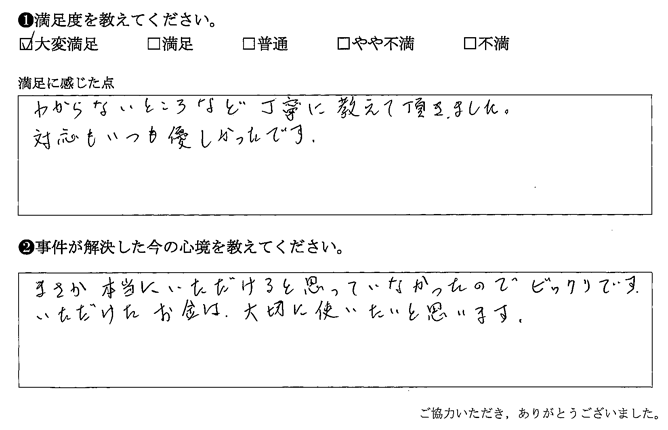 ❶満足度を教えてください。
☑大変満足 □満足 □普通 □やや不満 □不満
満足に感じた点
わからないところなど丁寧に教えて頂きました。
対応もいつも優しかったです.
❷事件が解決した今の心境を教えてください。
まさか本当にいただけると思っていなかったのでビックリです.
いただけたお金は、大切に使いたいと思います.
ご協力いただき，ありがとうございました。